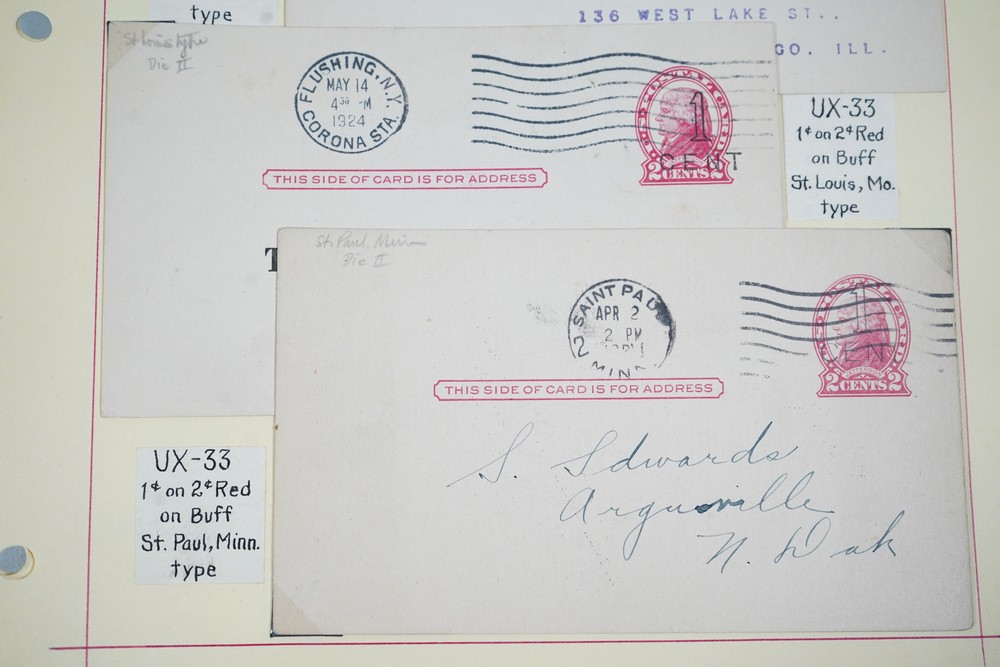 type
136 WEST LAKE ST..
GO. ILL.
St Louis type
Die II
FLUSHING, N.Y.
MAY 14
4 30 PM
1924
CORONA STA.
1
CENT
2 CENTS 2
THIS SIDE OF CARD IS FOR ADDRESS
UX-33
1¢ on 2¢ Red
on Buff
St. Louis, Mo.
type
T
St. Paul, Minn
Die II
SAINT PAU
APR 2
2 PM
2
MINN.
1
EN
2 CENTS 2
THIS SIDE OF CARD IS FOR ADDRESS
S. Edwards
Argusville
N. Dak
UX-33
1¢ on 2¢ Red
on Buff
St. Paul, Minn.
type